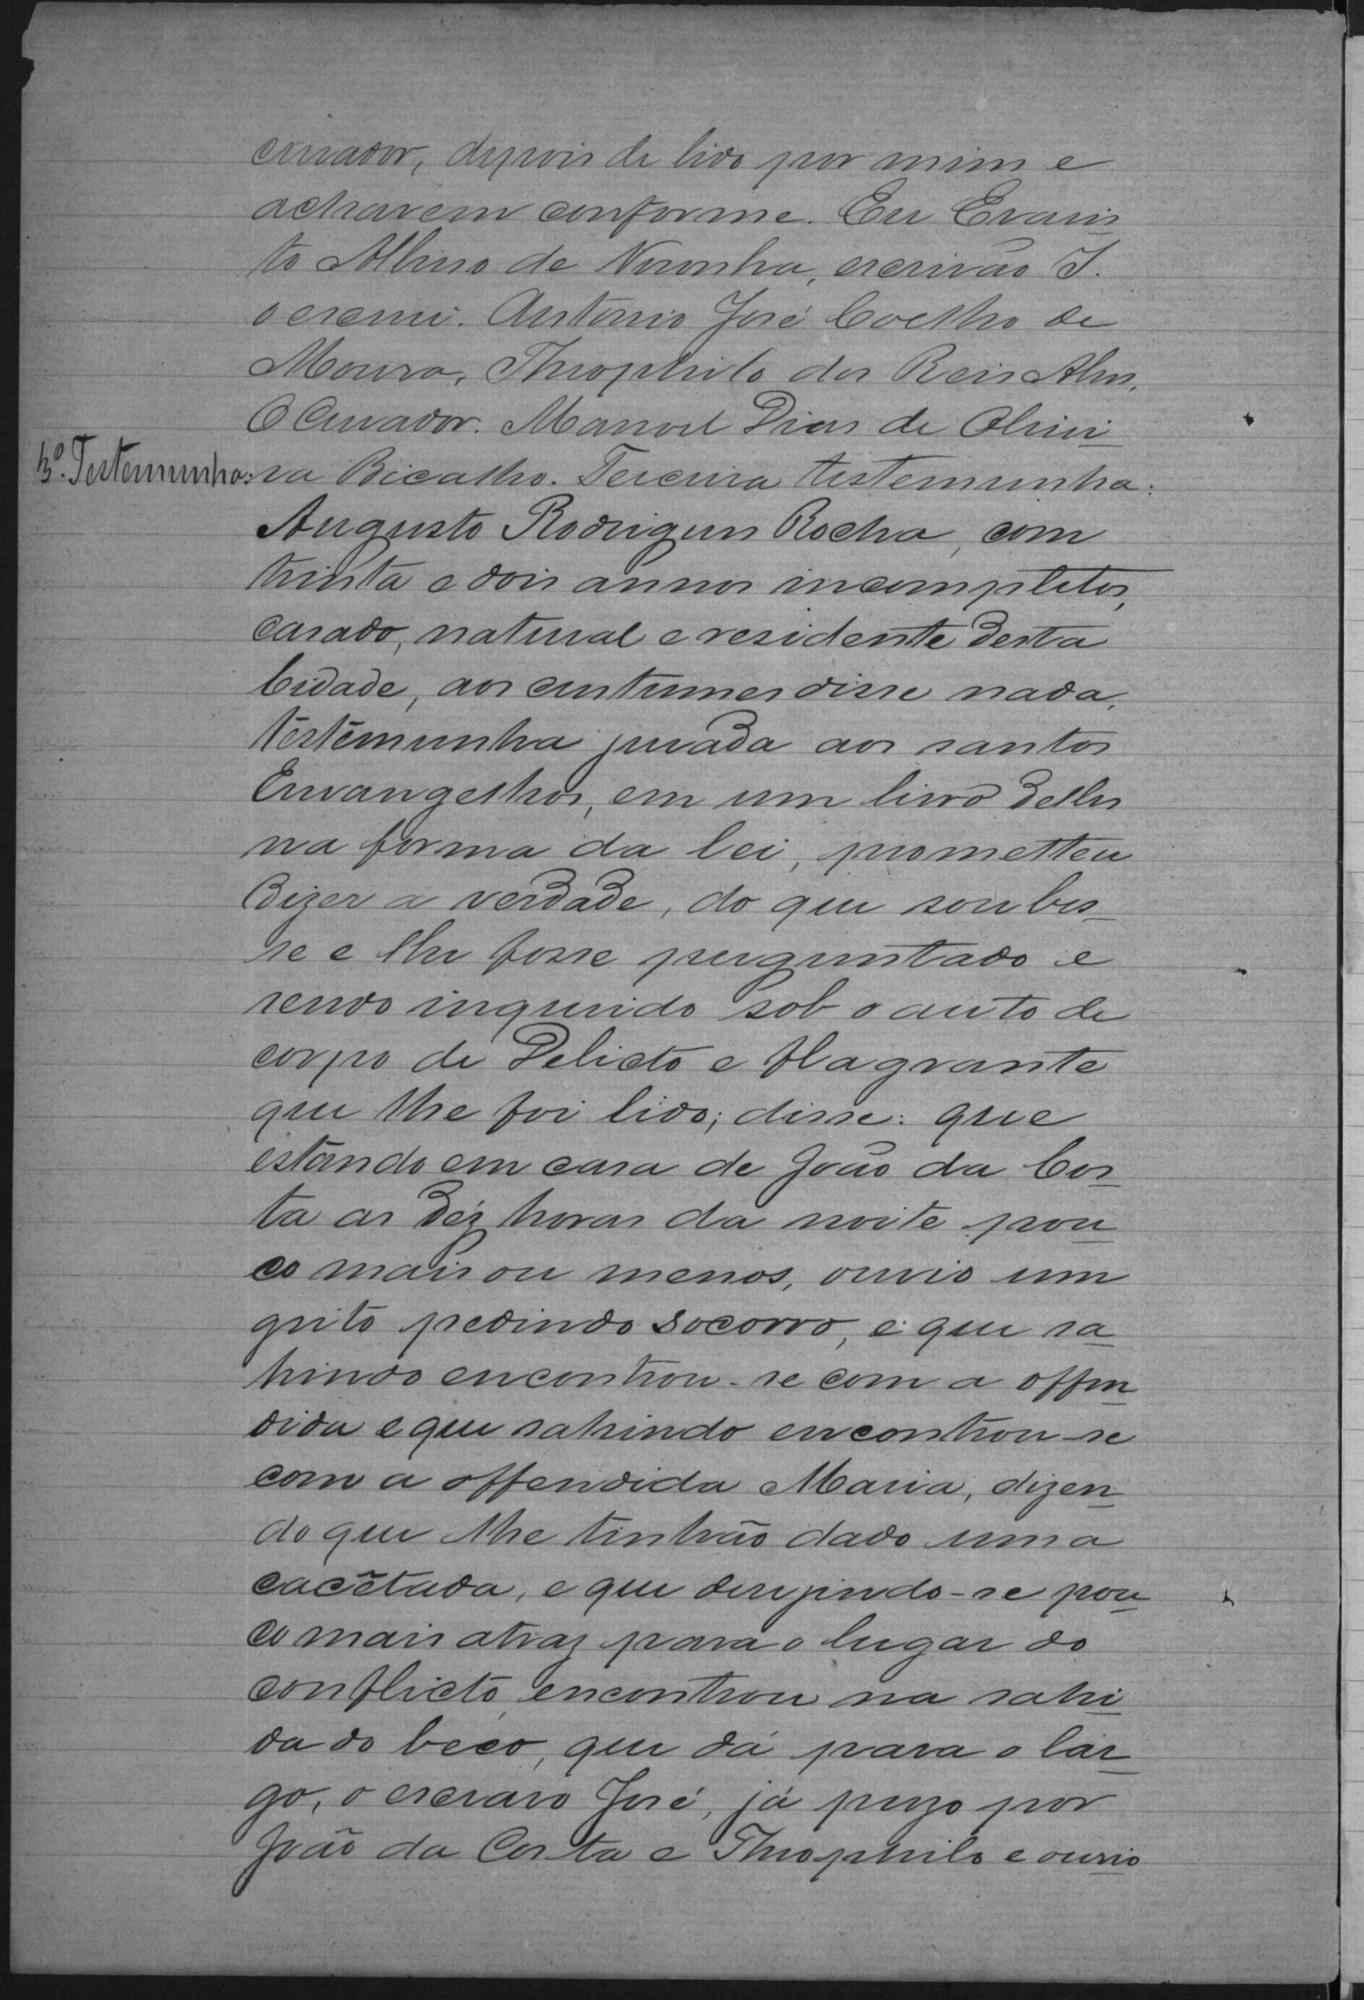 curador, depois de lido por mim e
acharem conforme. Eu Evaris
to Albino de Noronha, escrivão I.
o escrevi. Antonio José Coelho de
Moura, Theophilo dos Reis Alvs.
O Curador. Manoel Dias de Olivei
3ª. Testemunha: ra Bicalho. Terceira testemunha:
Augusto Rodrigues Rocha, com
trinta e dois annos incompletos,
casado, natural e residente desta
Cidade, aos custumes disse nada,
testemunha jurada aos santos
Envangelhos, em um livro delles
na forma da lei, prometteu
dizer a verdade, do que soubes
se e lhe fosse perguntado e
sendo inquirido sob o auto de
corpo de Delicto e flagrante
que lhe foi lido; disse: que
estando em casa de João da Cos
ta as déz horas da noite pou
co mais ou menos, ouvio um
grito pedindo socorro, e que sa
hindo encontrou-se com a offen
dida e que sahindo encontrou-se
com a offendida Maria, dizen
do que lhe tinhão dado uma
cacetada, e que dirijindo-se pou
co mais atraz para o lugar do
conflicto, encontrou na sahi
da do beco, que dá para o lar
go, o escravo José, já prezo por
João da Costa e Theophilo e ouvio